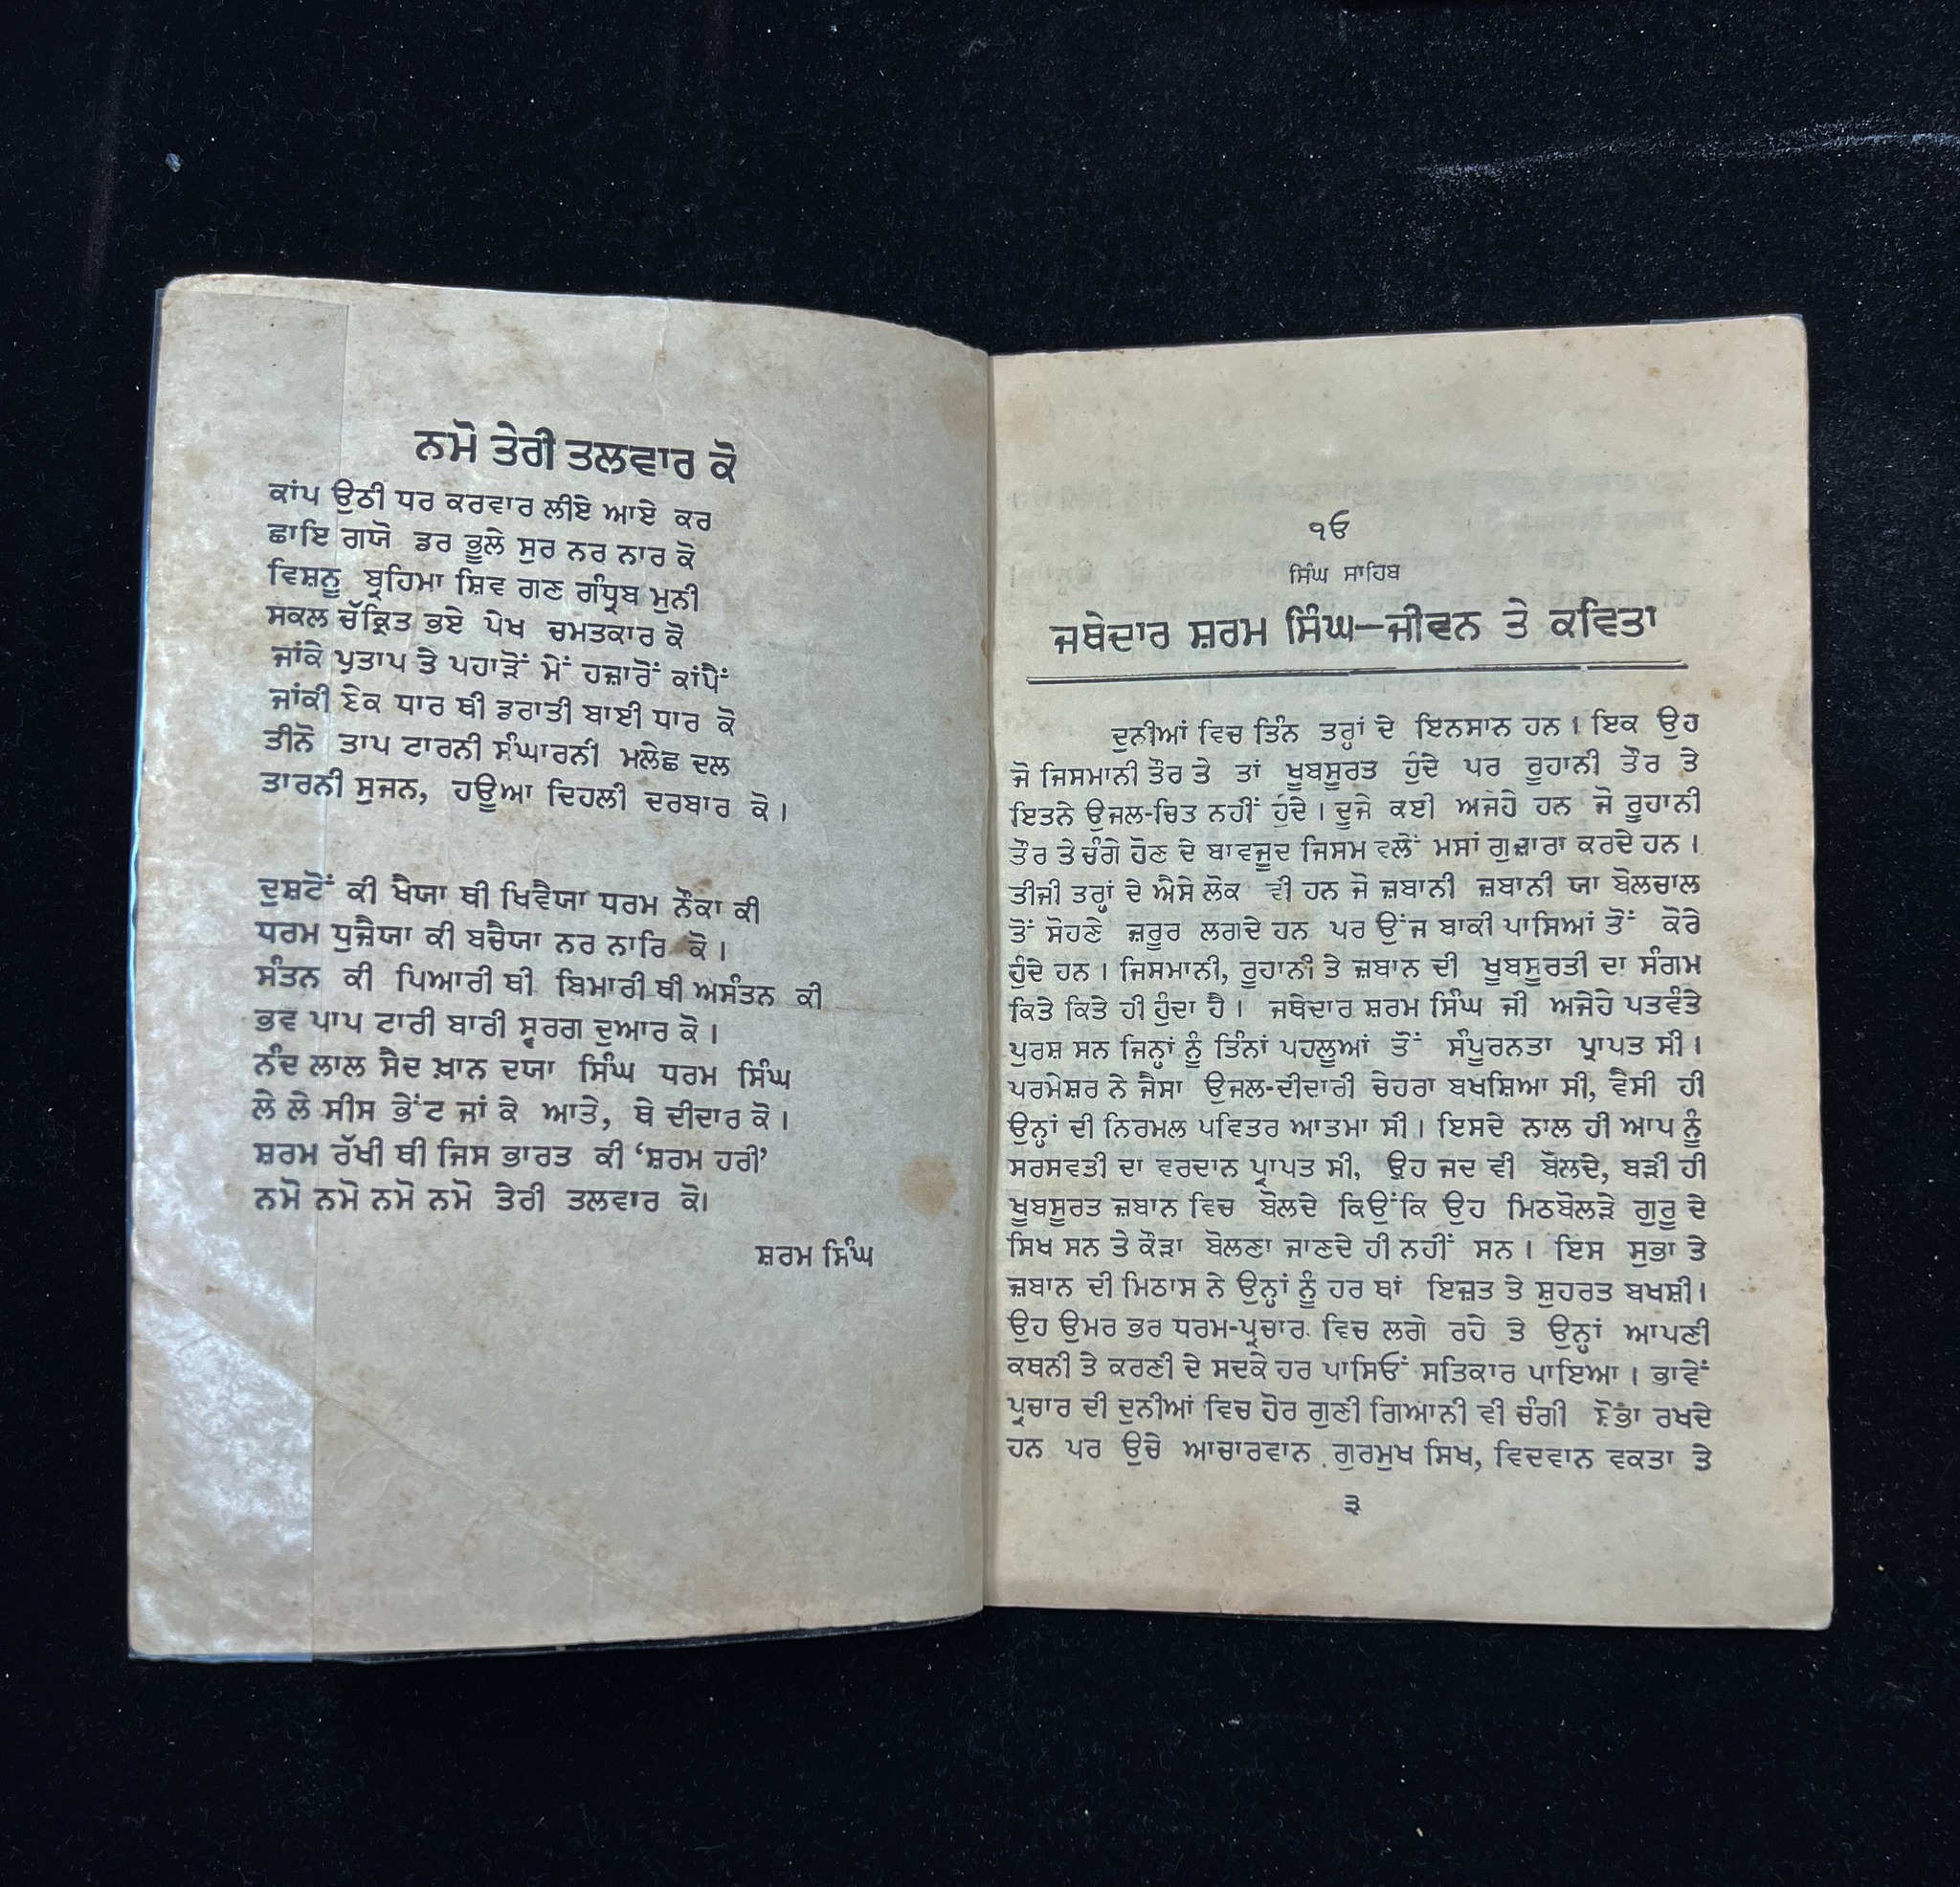 ਨਮੋ ਤੇਰੀ ਤਲਵਾਰ ਕੋ
ਕਾਂਪ ਉਠੀ ਧਰ ਕਰਵਾਰ ਲੀਏ ਆਏ ਕਰ
ਛਾਇ ਗਯੋ ਡਰ ਭੂਲੇ ਸੁਰ ਨਰ ਨਾਰ ਕੋ
ਵਿਸ਼ਨੂ ਬ੍ਰਹਿਮਾ ਸ਼ਿਵ ਗਣ ਗੰਧ੍ਰਬ ਮੁਨੀ
ਸਕਲ ਚੱਕ੍ਰਿਤ ਭਏ ਪੇਖ ਚਮਤਕਾਰ ਕੋ
ਜਾਂਕੇ ਪ੍ਰਤਾਪ ਤੇ ਪਹਾੜੋਂ ਮੇਂ ਹਜ਼ਾਰੋਂ ਕਾਂਪੈਂ
ਜਾਂਕੀ ਏਕ ਧਾਰ ਥੀ ਡਰਾਤੀ ਬਾਈ ਧਾਰ ਕੋ
ਤੀਨੋ ਤਾਪ ਟਾਰਨੀ ਸੰਘਾਰਨੀ ਮਲੇਛ ਦਲ
ਤਾਰਨੀ ਸੁਜਨ, ਹਊਆ ਦਿਹਲੀ ਦਰਬਾਰ ਕੋ।
ਦੁਸ਼ਟੋਂ ਕੀ ਖੈਯਾ ਥੀ ਖਿਵੈਯਾ ਧਰਮ ਨੌਕਾ ਕੀ
ਧਰਮ ਧੁਜੈਯਾ ਕੀ ਬਚੈਯਾ ਨਰ ਨਾਰਿ ਕੋ।
ਸੰਤਨ ਕੀ ਪਿਆਰੀ ਥੀ ਬਿਮਾਰੀ ਥੀ ਅਸੰਤਨ ਕੀ
ਭਵ ਪਾਪ ਟਾਰੀ ਬਾਰੀ ਸ੍ਵਰਗ ਦੁਆਰ ਕੋ।
ਨੰਦ ਲਾਲ ਸੈਦ ਖ਼ਾਨ ਦਯਾ ਸਿੰਘ ਧਰਮ ਸਿੰਘ
ਲੇ ਲੇ ਸੀਸ ਭੇਂਟ ਜਾਂ ਕੇ ਆਤੇ, ਥੇ ਦੀਦਾਰ ਕੋ।
ਸ਼ਰਮ ਰੱਖੀ ਥੀ ਜਿਸ ਭਾਰਤ ਕੀ ‘ਸ਼ਰਮ ਹਰੀ’
ਨਮੋ ਨਮੋ ਨਮੋ ਨਮੋ ਤੇਰੀ ਤਲਵਾਰ ਕੋ।
ਸ਼ਰਮ ਸਿੰਘ
੧ਓ
ਸਿੰਘ ਸਾਹਿਬ
ਜਥੇਦਾਰ ਸ਼ਰਮ ਸਿੰਘ—ਜੀਵਨ ਤੇ ਕਵਿਤਾ
ਦੁਨੀਆਂ ਵਿਚ ਤਿੰਨ ਤਰ੍ਹਾਂ ਦੇ ਇਨਸਾਨ ਹਨ। ਇਕ ਉਹ
ਜੋ ਜਿਸਮਾਨੀ ਤੌਰ ਤੇ ਤਾਂ ਖੂਬਸੂਰਤ ਹੁੰਦੇ ਪਰ ਰੂਹਾਨੀ ਤੌਰ ਤੇ
ਇਤਨੇ ਉਜਲ-ਚਿਤ ਨਹੀਂ ਹੁੰਦੇ। ਦੂਜੇ ਕਈ ਅਜਹੇ ਹਨ ਜੋ ਰੂਹਾਨੀ
ਤੌਰ ਤੇ ਚੰਗੇ ਹੋਣ ਦੇ ਬਾਵਜੂਦ ਜਿਸਮ ਵਲੋਂ ਮਸਾਂ ਗੁਜ਼ਾਰਾ ਕਰਦੇ ਹਨ।
ਤੀਜੀ ਤਰ੍ਹਾਂ ਦੇ ਐਸੇ ਲੋਕ ਵੀ ਹਨ ਜੋ ਜ਼ਬਾਨੀ ਜ਼ਬਾਨੀ ਯਾ ਬੋਲਚਾਲ
ਤੋਂ ਸੋਹਣੇ ਜ਼ਰੂਰ ਲਗਦੇ ਹਨ ਪਰ ਉਂਜ ਬਾਕੀ ਪਾਸਿਆਂ ਤੋਂ ਕੋਰੇ
ਹੁੰਦੇ ਹਨ। ਜਿਸਮਾਨੀ, ਰੂਹਾਨੀ ਤੇ ਜ਼ਬਾਨ ਦੀ ਖੂਬਸੂਰਤੀ ਦਾ ਸੰਗਮ
ਕਿਤੇ ਕਿਤੇ ਹੀ ਹੁੰਦਾ ਹੈ। ਜਥੇਦਾਰ ਸ਼ਰਮ ਸਿੰਘ ਜੀ ਅਜੇਹੇ ਪਤਵੰਤੇ
ਪੁਰਸ਼ ਸਨ ਜਿਨ੍ਹਾਂ ਨੂੰ ਤਿੰਨਾਂ ਪਹਲੂਆਂ ਤੋਂ ਸੰਪੂਰਨਤਾ ਪ੍ਰਾਪਤ ਸੀ।
ਪਰਮੇਸ਼ਰ ਨੇ ਜੈਸਾ ਉਜਲ-ਦੀਦਾਰੀ ਚੇਹਰਾ ਬਖਸ਼ਿਆ ਸੀ, ਵੈਸੀ ਹੀ
ਉਨ੍ਹਾਂ ਦੀ ਨਿਰਮਲ ਪਵਿਤਰ ਆਤਮਾ ਸੀ। ਇਸਦੇ ਨਾਲ ਹੀ ਆਪ ਨੂੰ
ਸਰਸਵਤੀ ਦਾ ਵਰਦਾਨ ਪ੍ਰਾਪਤ ਸੀ, ਉਹ ਜਦ ਵੀ ਬੋਲਦੇ, ਬੜੀ ਹੀ
ਖੂਬਸੂਰਤ ਜ਼ਬਾਨ ਵਿਚ ਬੋਲਦੇ ਕਿਉਂਕਿ ਉਹ ਮਿਠਬੋਲੜੇ ਗੁਰੂ ਦੇ
ਸਿਖ ਸਨ ਤੇ ਕੌੜਾ ਬੋਲਣਾ ਜਾਣਦੇ ਹੀ ਨਹੀਂ ਸਨ। ਇਸ ਸੁਭਾ ਤੇ
ਜ਼ਬਾਨ ਦੀ ਮਿਠਾਸ ਨੇ ਉਨ੍ਹਾਂ ਨੂੰ ਹਰ ਥਾਂ ਇਜ਼ਤ ਤੇ ਸ਼ੁਹਰਤ ਬਖਸ਼ੀ।
ਉਹ ਉਮਰ ਭਰ ਧਰਮ-ਪ੍ਰਚਾਰ ਵਿਚ ਲਗੇ ਰਹੇ ਤੇ ਉਨ੍ਹਾਂ ਆਪਣੀ
ਕਥਨੀ ਤੇ ਕਰਣੀ ਦੇ ਸਦਕੇ ਹਰ ਪਾਸਿਓਂ ਸਤਿਕਾਰ ਪਾਇਆ। ਭਾਵੇਂ
ਪ੍ਰਚਾਰ ਦੀ ਦੁਨੀਆਂ ਵਿਚ ਹੋਰ ਗੁਣੀ ਗਿਆਨੀ ਵੀ ਚੰਗੀ ਸ਼ੋਭਾ ਰਖਦੇ
ਹਨ ਪਰ ਉਚੇ ਆਚਾਰਵਾਨ ਗੁਰਮੁਖ ਸਿਖ, ਵਿਦਵਾਨ ਵਕਤਾ ਤੇ
੩